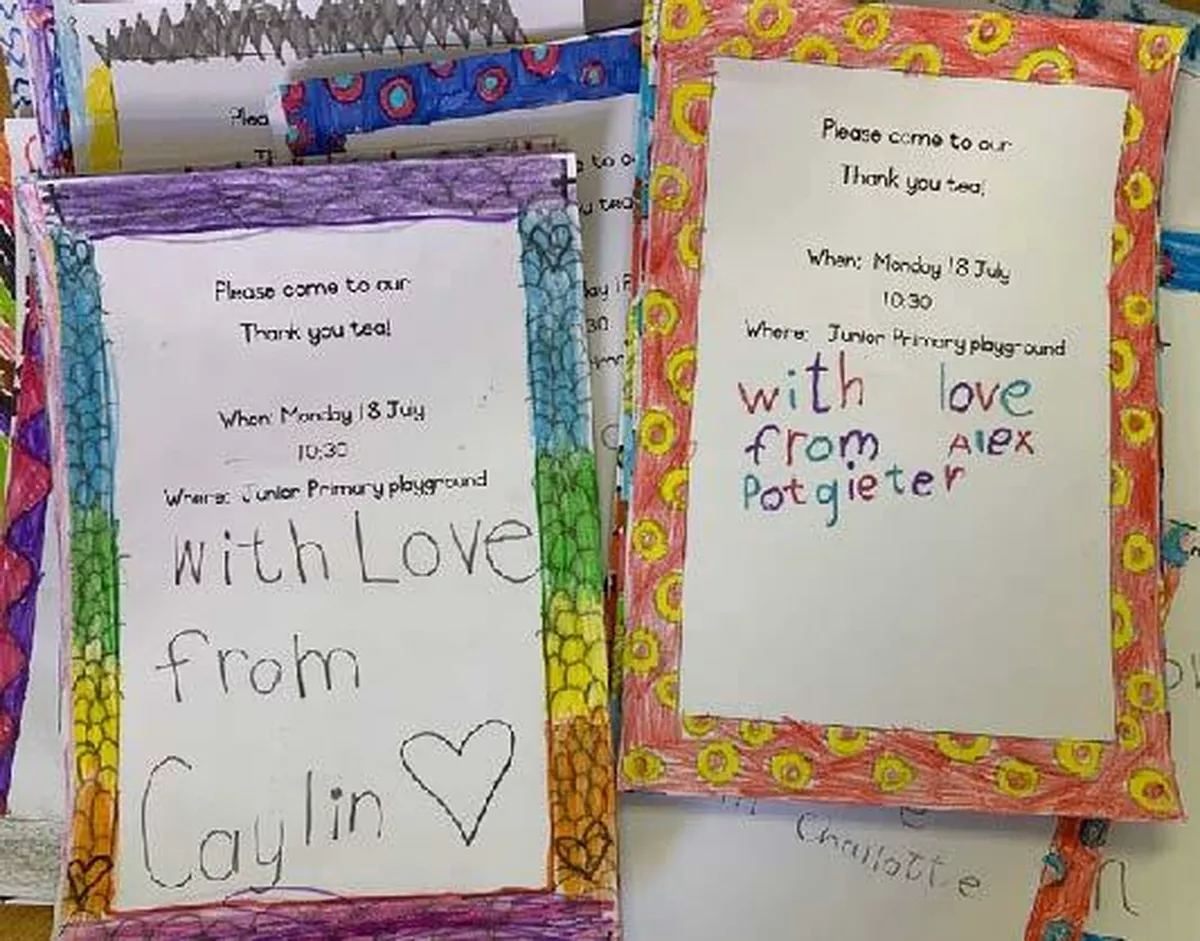 Please come to our
Thank you tea!
When: Monday 18 July
10:30
Where: Junior Primary playground
with Love
from
Caylin
Please come to our
Thank you tea!
When: Monday 18 July
10:30
Where: Junior Primary playground
with love
from Alex
Potgieter
Charlotte